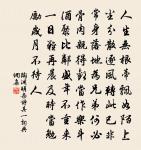 人生無根蒂飄如陌上
塵分散逐風轉此已非
常身落地為兄弟何必
骨肉親得歡當作樂斗
酒聚比鄰盛年不重來
一日難再晨及時當勉
勵歲月不待人
陶淵明雜詩其一